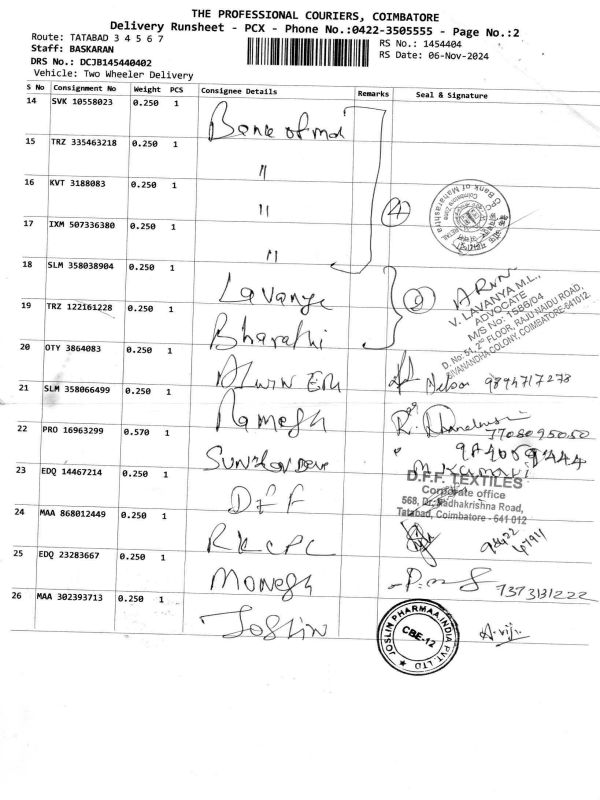 THE PROFESSIONAL COURIERS, COIMBATORE
Delivery Runsheet - PCX - Phone No.:0422-3505555 - Page No.:2
Route: TATABAD 3 4 5 6 7
RS No.: 1454404
Staff: BASKARAN
RS Date: 06-Nov-2024
DRS No.: DCJB145440402
Vehicle: Two Wheeler Delivery
S No Consignment No Weight PCS Consignee Details Remarks Seal & Signature
14 SVK 10558023 0.250 1 Bank of
15 TRZ 335463218 0.250 1 "
16 KVT 3188083 0.250 1 "
17 IXM 507336380 0.250 1 "
4
CPC Bank of Maharashtra
Coimbatore Zone
18 SLM 358038904 0.250 1 Lavanya
19 TRZ 122161228 0.250 1 Bharathi
2
V. LAVANYA M.L.,
ADVOCATE
M/S No: 1566/04
D. No: 51, 2nd FLOOR, RAJU NAIDU ROAD,
SIVANANDHA COLONY, COIMBATORE-641012
20 OTY 3864083 0.250 1 Alwin
Nelson 9894717278
21 SLM 358066499 0.250 1 Ramesh
7708095050
22 PRO 16963299 0.570 1
M. Kumari
23 EDQ 14467214 0.250 1 DFF
D.F.F. TEXTILES
Corporate office
568, Dr. Radhakrishna Road,
Tatabad, Coimbatore - 641 012
24 MAA 868012449 0.250 1 RKCPC
25 EDQ 23283667 0.250 1 Monesh
7373131222
26 MAA 302393713 0.250 1 Joslin
JOSLIN PHARMAA INDIA PVT. LTD
CBE-12
A. viji